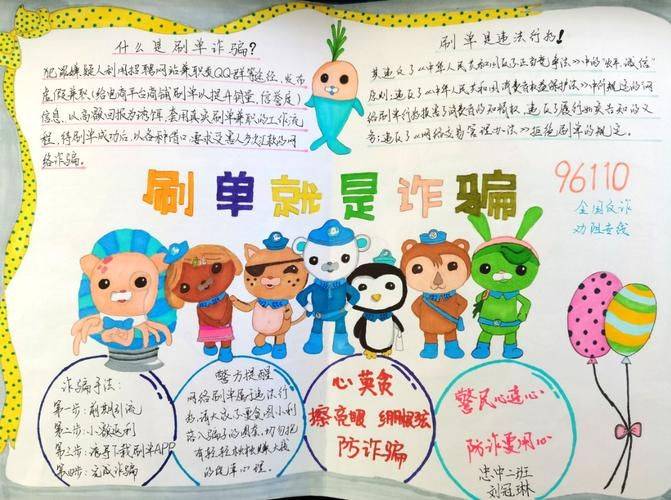 什么是刷单诈骗?
犯罪嫌疑人利用招聘网站兼职类QQ群等途径,发布
虚假兼职(给电商平台商铺刷单以提升销量,信誉度)
信息,以高额回报为诱饵,套用真实刷单兼职的工作流
程,待刷单成功后,以各种借口,要求受害人多次汇款的网
络诈骗。
刷单是违法行为!
其违反了《中华人民共和国反不正当竞争法》中的"公平,诚信"
原则;违反了《中华人民共和国消费者权益保护法》中所规定的网
络刷单行为损害了消费者的知情权,违反了履行如实告知的义
务;违反了《网络交易管理办法》拒绝刷单的规定。
刷单就是诈骗
96110
全国反诈
劝阻专线
诈骗手法:
第一步:前期引流
第二步:小额返利
第三步:诱导下载刷单APP
第四步:完成诈骗
警方提醒
网络刷单属违法行
为,请大家不要贪图小利
落入骗子的圈套,切勿抱
有轻轻松松赚大钱
的侥幸心理。
心莫贪
擦亮眼 绷紧弦
防诈骗
警民心连心
防诈要用心
忠中二班
刘冠琳